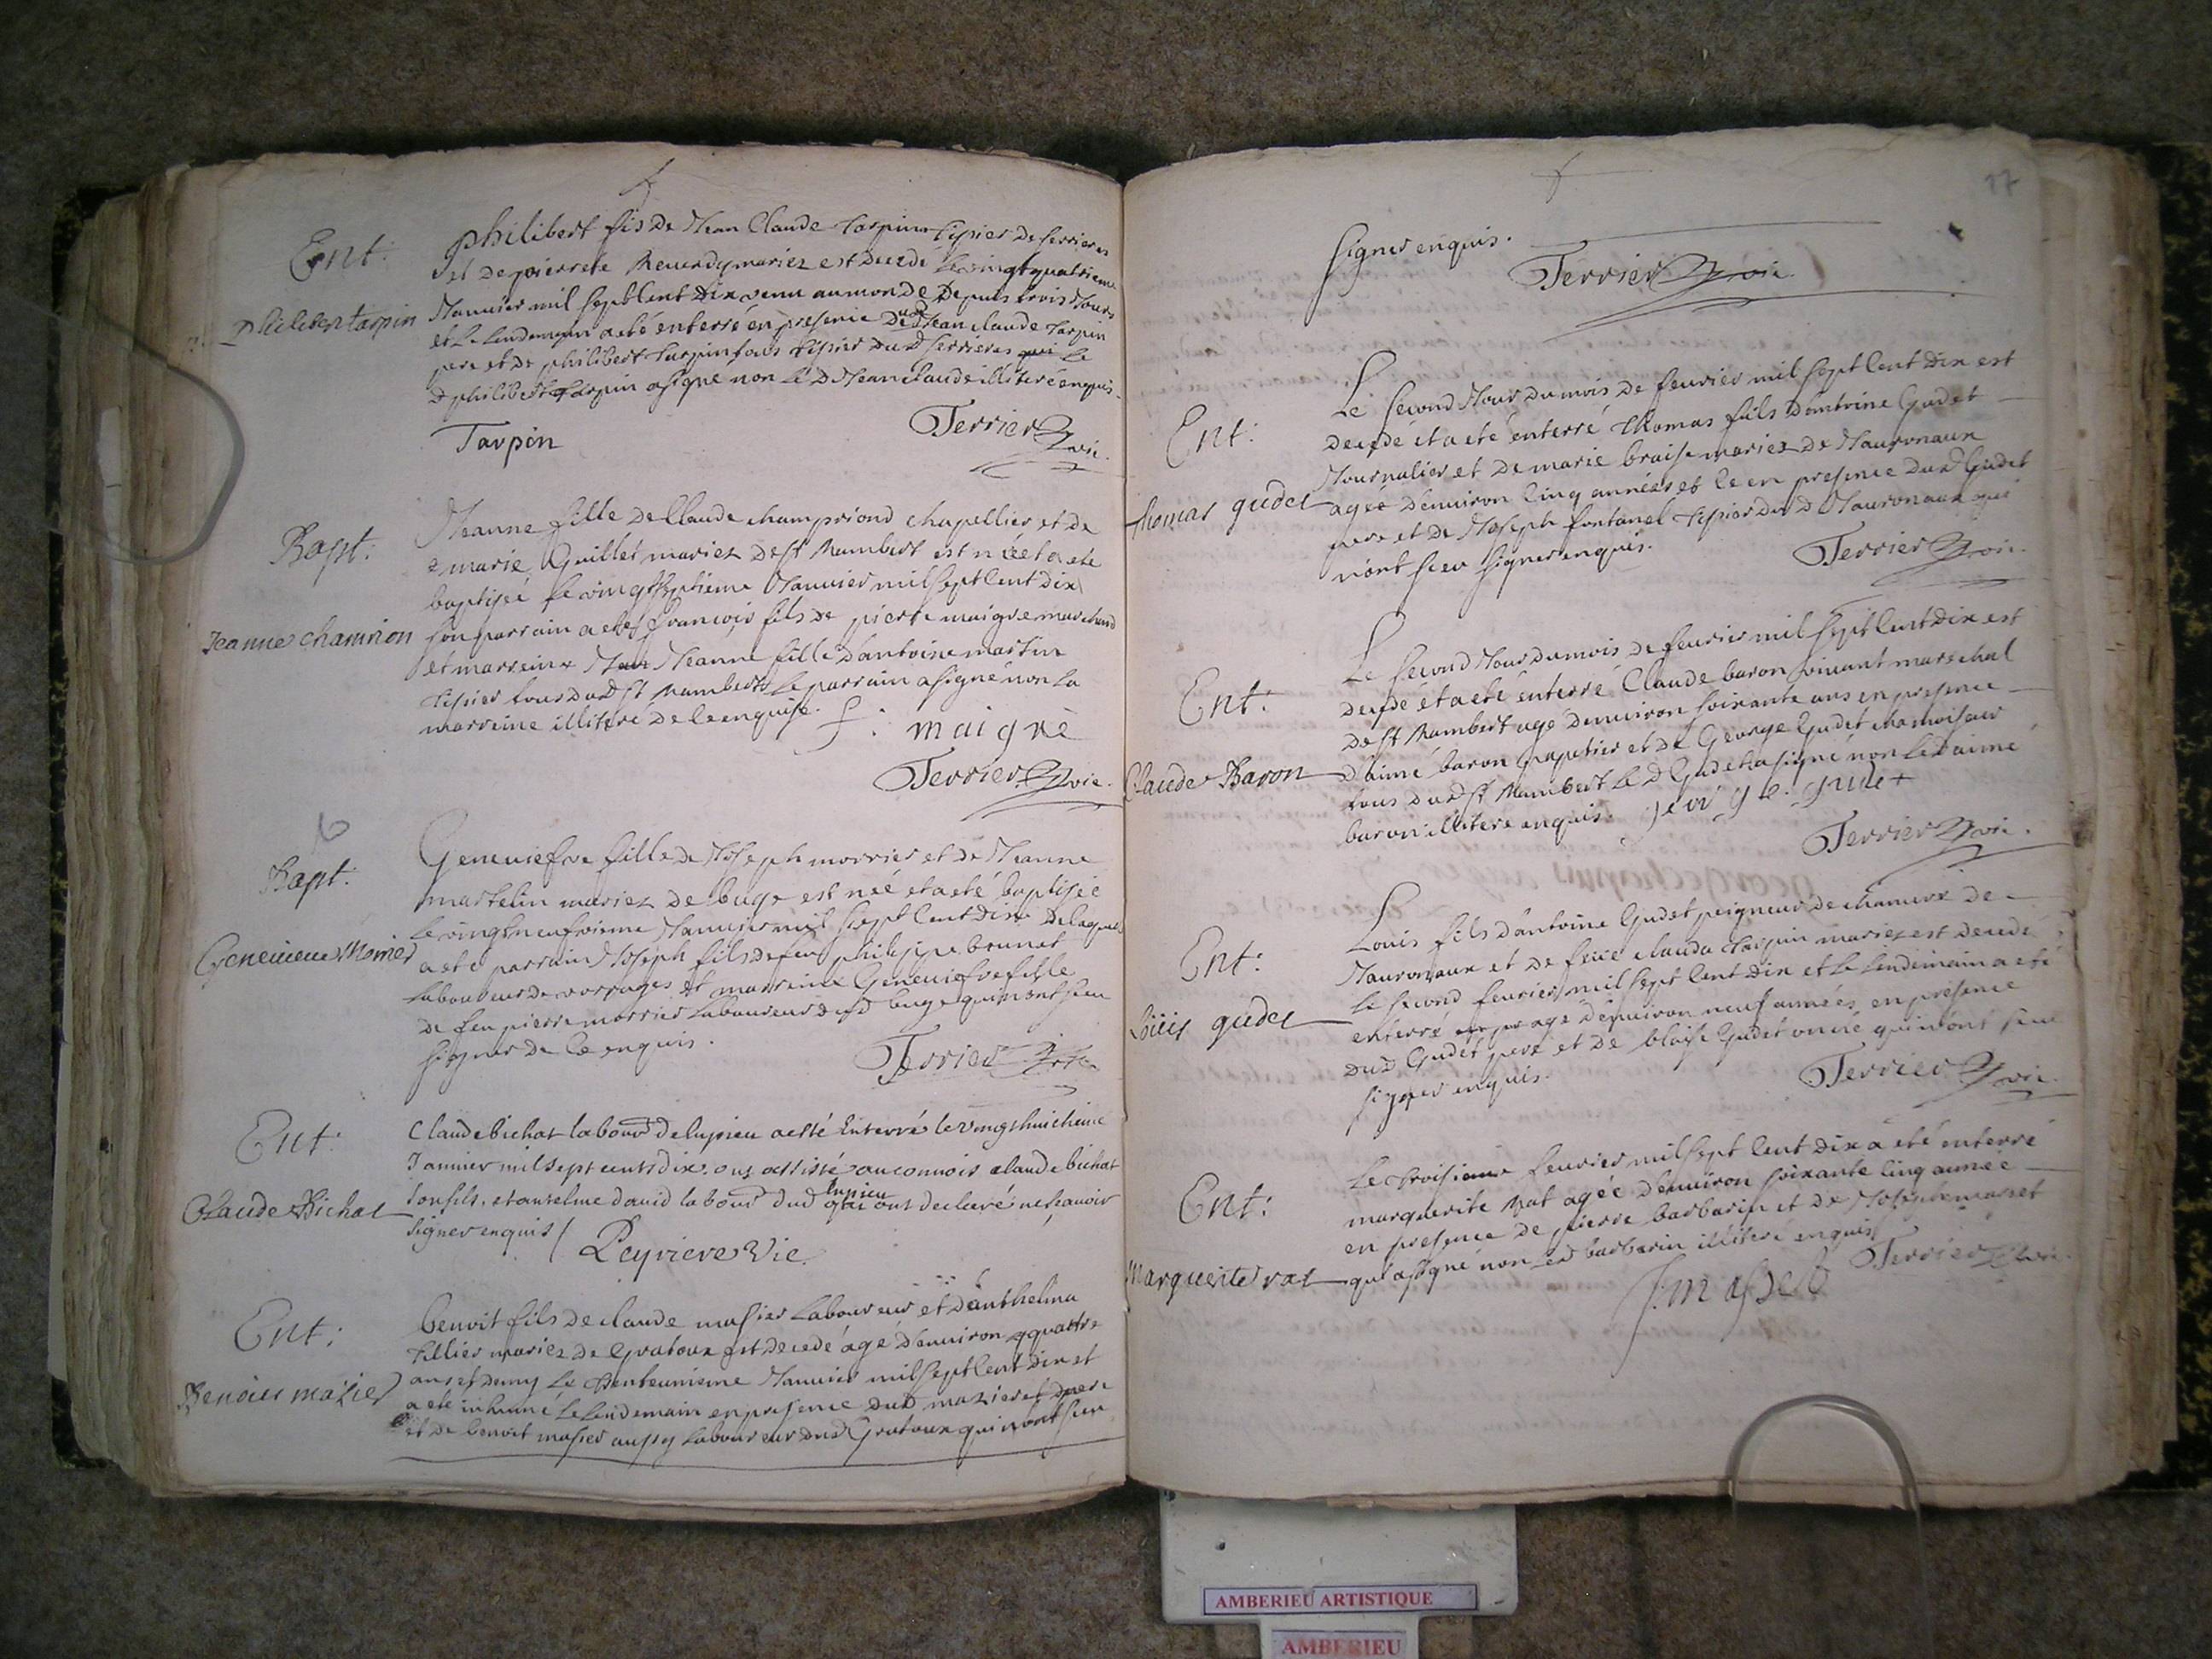 Ent:
philibert tarpin
philibert fis de Jean Claude tarpin tissier de serrieres
et de pierrete Reverdy mariez est decedé le vingt quatrieme
Janvier mil sept cent dix venu au monde depuis trois Jours
et le lendemain a eté enterré en presence dud Jean claude tarpin
pere et de philibert tarpin tous tissier dud serrieres qui le
d philibert tarpin a signé non le d Jean claude illiteré enquis
Tarpin
Terrier vic.
Bapt:
Jeanne chamrion
Jeanne fille de Claude champriond chapellier et de
marie Guillet mariez de st Rambert est née et a ete
baptisée le vingt septieme Janvier mil sept cent dix
son parrain a eté françois fils de pierre maigre marchand
et marreine Jean Jeanne fille d'antoine martin
tissier tous dud st Rambert le parrain a signé non la
marreine illiteré de ce enquise.
f: maigre
Terrier vic.
Bapt:
Genevieve Morier
Geneviefve fille de Joseph morrier et de Jeanne
martelin mariez de buge est née et a eté baptisée
le vingt neufvieme Janvier mil sept cent dix de laquelle
a eté parrain Joseph fils de feu philippe brunet
laboureur de vorrages et marreine Genevielve fille
de feu pierre morrier laboureur dud buge qui n'ont sceu
signer de ce enquis.
Terrier vic.
Ent:
Claude Bichat
Claude bichat labour de lupieu a esté Enterré le vingt huicheme
Janvier mil sept cents dix. ont assisté au convois claude bichat
son fils. et antelme david labour dud lupieu qui ont declaré ne scavoir
signer enquis / Peyriere Vic.
Ent:
Benoict mazier
benoit fils de claude masier laboureur et d'anthelma
tillier mariez de Gratoux est decedé agé d'environ quattre
ans et demy le trenteunieme Janvier mil sept cent dix et
a eté inhumé le lendemain en presence dud mazier pere
et de benoit masier aussy laboureur dud Gratoux qui n'ont sceu
17
signer enquis.
Terrier vic.
Ent:
thomas gudet
Le second Jour du mois de fevrier mil sept cent dix est
decedé et a eté enterré thomas fils d'antoine Gudet
Journalier et de marie braise mariez de Javornaux
agée d'environ cinq années et ce en presence dud Gudet
pere et de Joseph fontanel tissier dud Javornaux qui
n'ont sceu signer enquis.
Terrier vic.
Ent:
Claude Baron
Le second Jour du mois de fevrier mil sept cent dix est
decedé et a eté enterré Claude baron vivant marechal
de st Rambert agé d'environ soixante ans en presence
d'aimé baron papetier et de George Gudet chamoiseur
tous dud st Rambert le d Gudet a signé non led aimé
baron illiteré enquis. jeorge gudet
Terrier vic.
Ent:
Loüis gudet
Louis fils d'antoine Gudet peigneur de chanvre de
Javornaux et de feüe clauda tarpin mariez est decedé
le second fevrier mil sept cent dix et le lendemain a eté
enterré agé d'environ neuf années en présence
dud Gudet pere et de blaise Gudet oncle qui n'ont sceu
signer enquis.
Terrier vic.
Ent:
Marguerite rat
Le troisieme fevrier mil sept cent dix a eté enterré
marguerite Rat agée d'environ soixante cinq année
en presence de pierre barbarin et de Joseph masset
qui a signé non led barbarin illiteré enquis
J. masset
Terrier vic.
AMBERIEU ARTISTIQUE
AMBERIEU